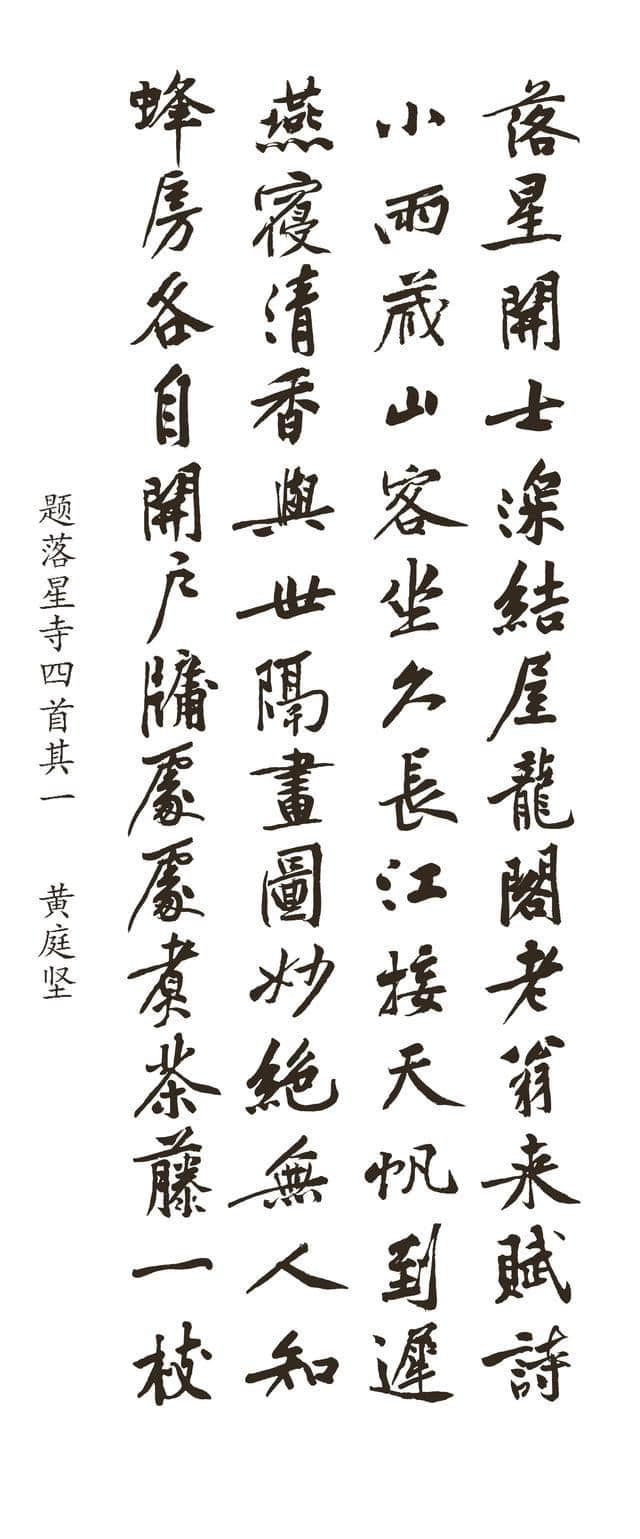 落星開士深結屋龍閣老翁来賦詩
小雨蔵山客坐久長江接天帆到遲
燕寢清香與世隔畫圖妙絶無人知
蜂房各自開户牖處處煮茶藤一枝
题落星寺四首其一 黄庭坚